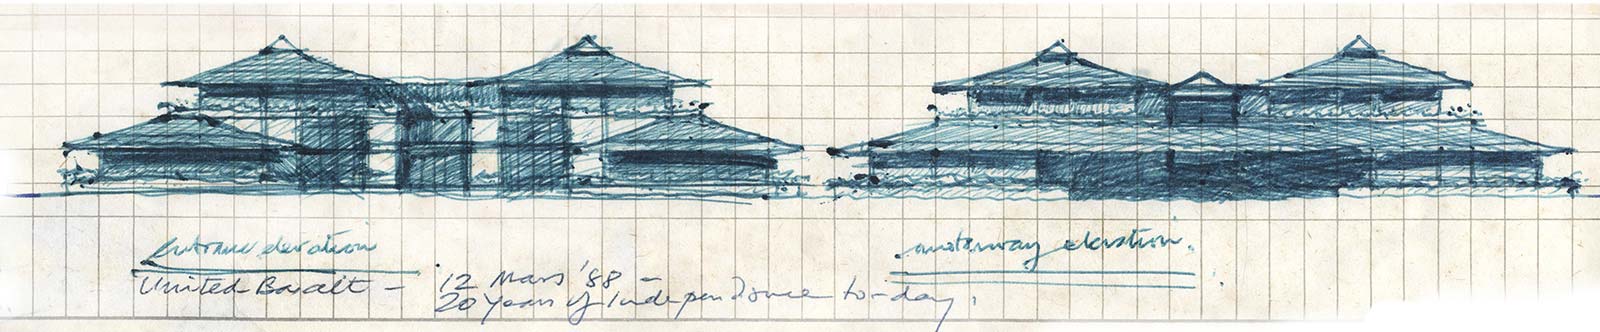 entrance elevation
motorway elevation.
United Basalt – 12 Mars '88 –
20 years of Independance to-day.